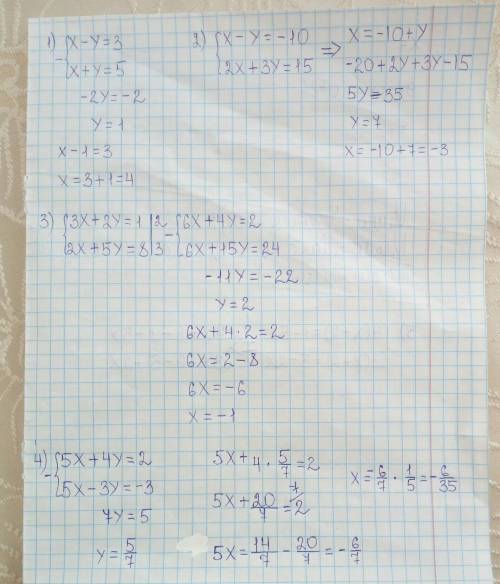 1) {x-y=3
- {x+y=5
-2y=-2
y=1
x-1=3
x=3+1=4
2) {x-y=-10
{2x+3y=15
=> x=-10+y
-20+2y+3y=15
5y=35
y=7
x=-10+7=-3
3) {3x+2y=1 |2
{2x+5y=8 |3
- {6x+4y=2
{6x+15y=24
-11y=-22
y=2
6x+4·2=2
6x=2-8
6x=-6
x=-1
4) {5x+4y=2
- {5x-3y=-3
7y=5
y=5/7
5x+4·5/7=2
5x+20/7=2 /7
5x=14/7-20/7=-6/7
x=-6/7·1/5=-6/35